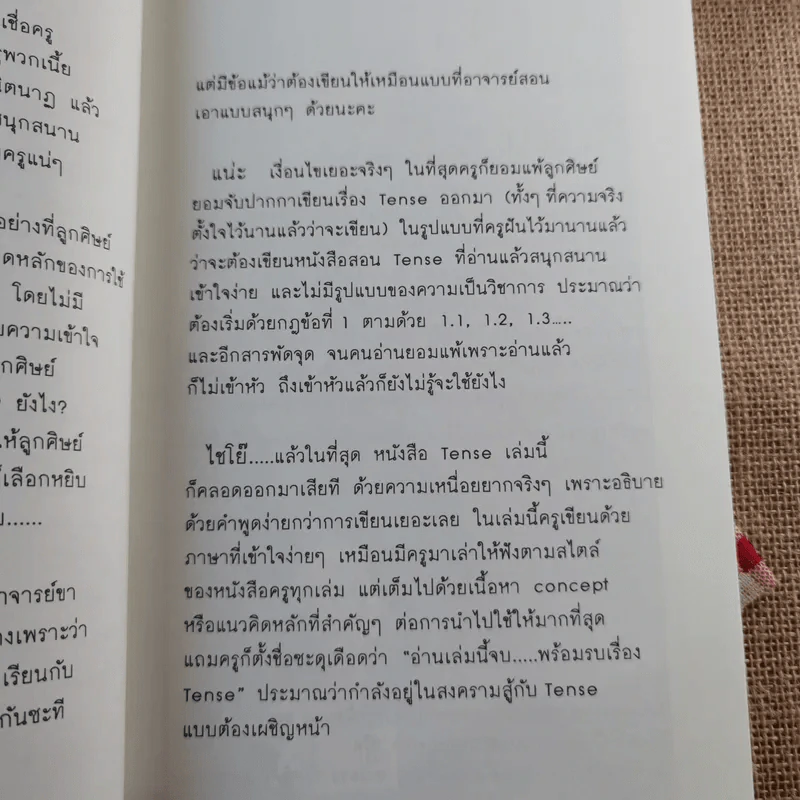 เชื่อครู
พวกเนี้ย
แล้ว
นุกสนาน
ครูแน่ๆ
อย่างที่ลูกศิษย์
ดหลักของการใช้
โดยไม่มี
ความเข้าใจ
กศิษย์
ยังไง?
ห้ลูกศิษย์
เลือกหยิบ
าจารย์ขา
งเพราะว่า
เรียนกับ
กันซะที
แต่มีข้อแม้ว่าต้องเขียนให้เหมือนแบบที่อาจารย์สอน
เอาแบบสนุกๆ ด้วยนะคะ
แน่ะ เงื่อนไขเยอะจริงๆ ในที่สุดครูก็ยอมแพ้ลูกศิษย์
ยอมจับปากกาเขียนเรื่อง Tense ออกมา (ทั้งๆ ที่ความจริง
ตั้งใจไว้นานแล้วว่าจะเขียน) ในรูปแบบที่ครูฝันไว้มานานแล้ว
ว่าจะต้องเขียนหนังสือสอน Tense ที่อ่านแล้วสนุกสนาน
เข้าใจง่าย และไม่มีรูปแบบของความเป็นวิชาการ ประมาณว่า
ต้องเริ่มด้วยกฎข้อที่ 1 ตามด้วย 1.1, 1.2, 1.3.....
และอีกสารพัดจุด จนคนอ่านยอมแพ้เพราะอ่านแล้ว
ก็ไม่เข้าหัว ถึงเข้าหัวแล้วก็ยังไม่รู้จะใช้ยังไง
ไชโย๊.....แล้วในที่สุด หนังสือ Tense เล่มนี้
ก็คลอดออกมาเสียที ด้วยความเหนื่อยยากจริงๆ เพราะอธิบาย
ด้วยคำพูดง่ายกว่าการเขียนเยอะเลย ในเล่มนี้ครูเขียนด้วย
ภาษาที่เข้าใจง่ายๆ เหมือนมีครูมาเล่าให้ฟังตามสไตล์
ของหนังสือครูทุกเล่ม แต่เต็มไปด้วยเนื้อหา concept
หรือแนวคิดหลักที่สำคัญๆ ต่อการนำไปใช้ให้มากที่สุด
แถมครูก็ตั้งชื่อซะดุเดือดว่า "อ่านเล่มนี้จบ.....พร้อมรบเรื่อง
Tense" ประมาณว่ากำลังอยู่ในสงครามสู้กับ Tense
แบบต้องเผชิญหน้า